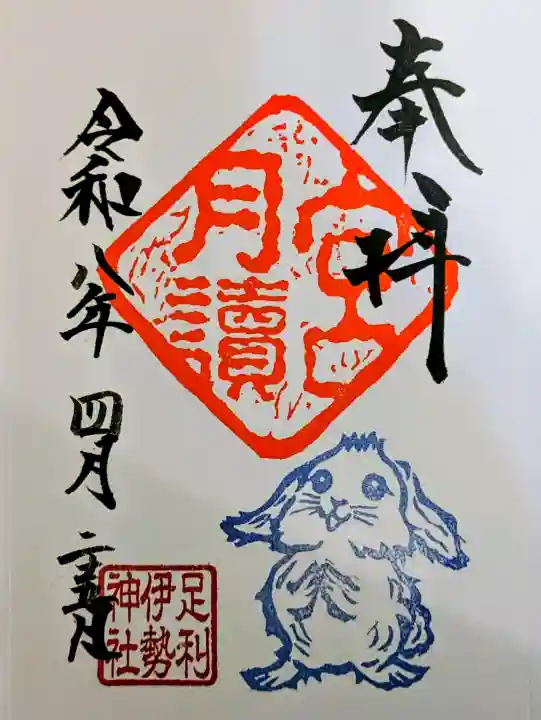 奉拝
月讀宮
令和八年四月二十五日
足利
伊勢
神社